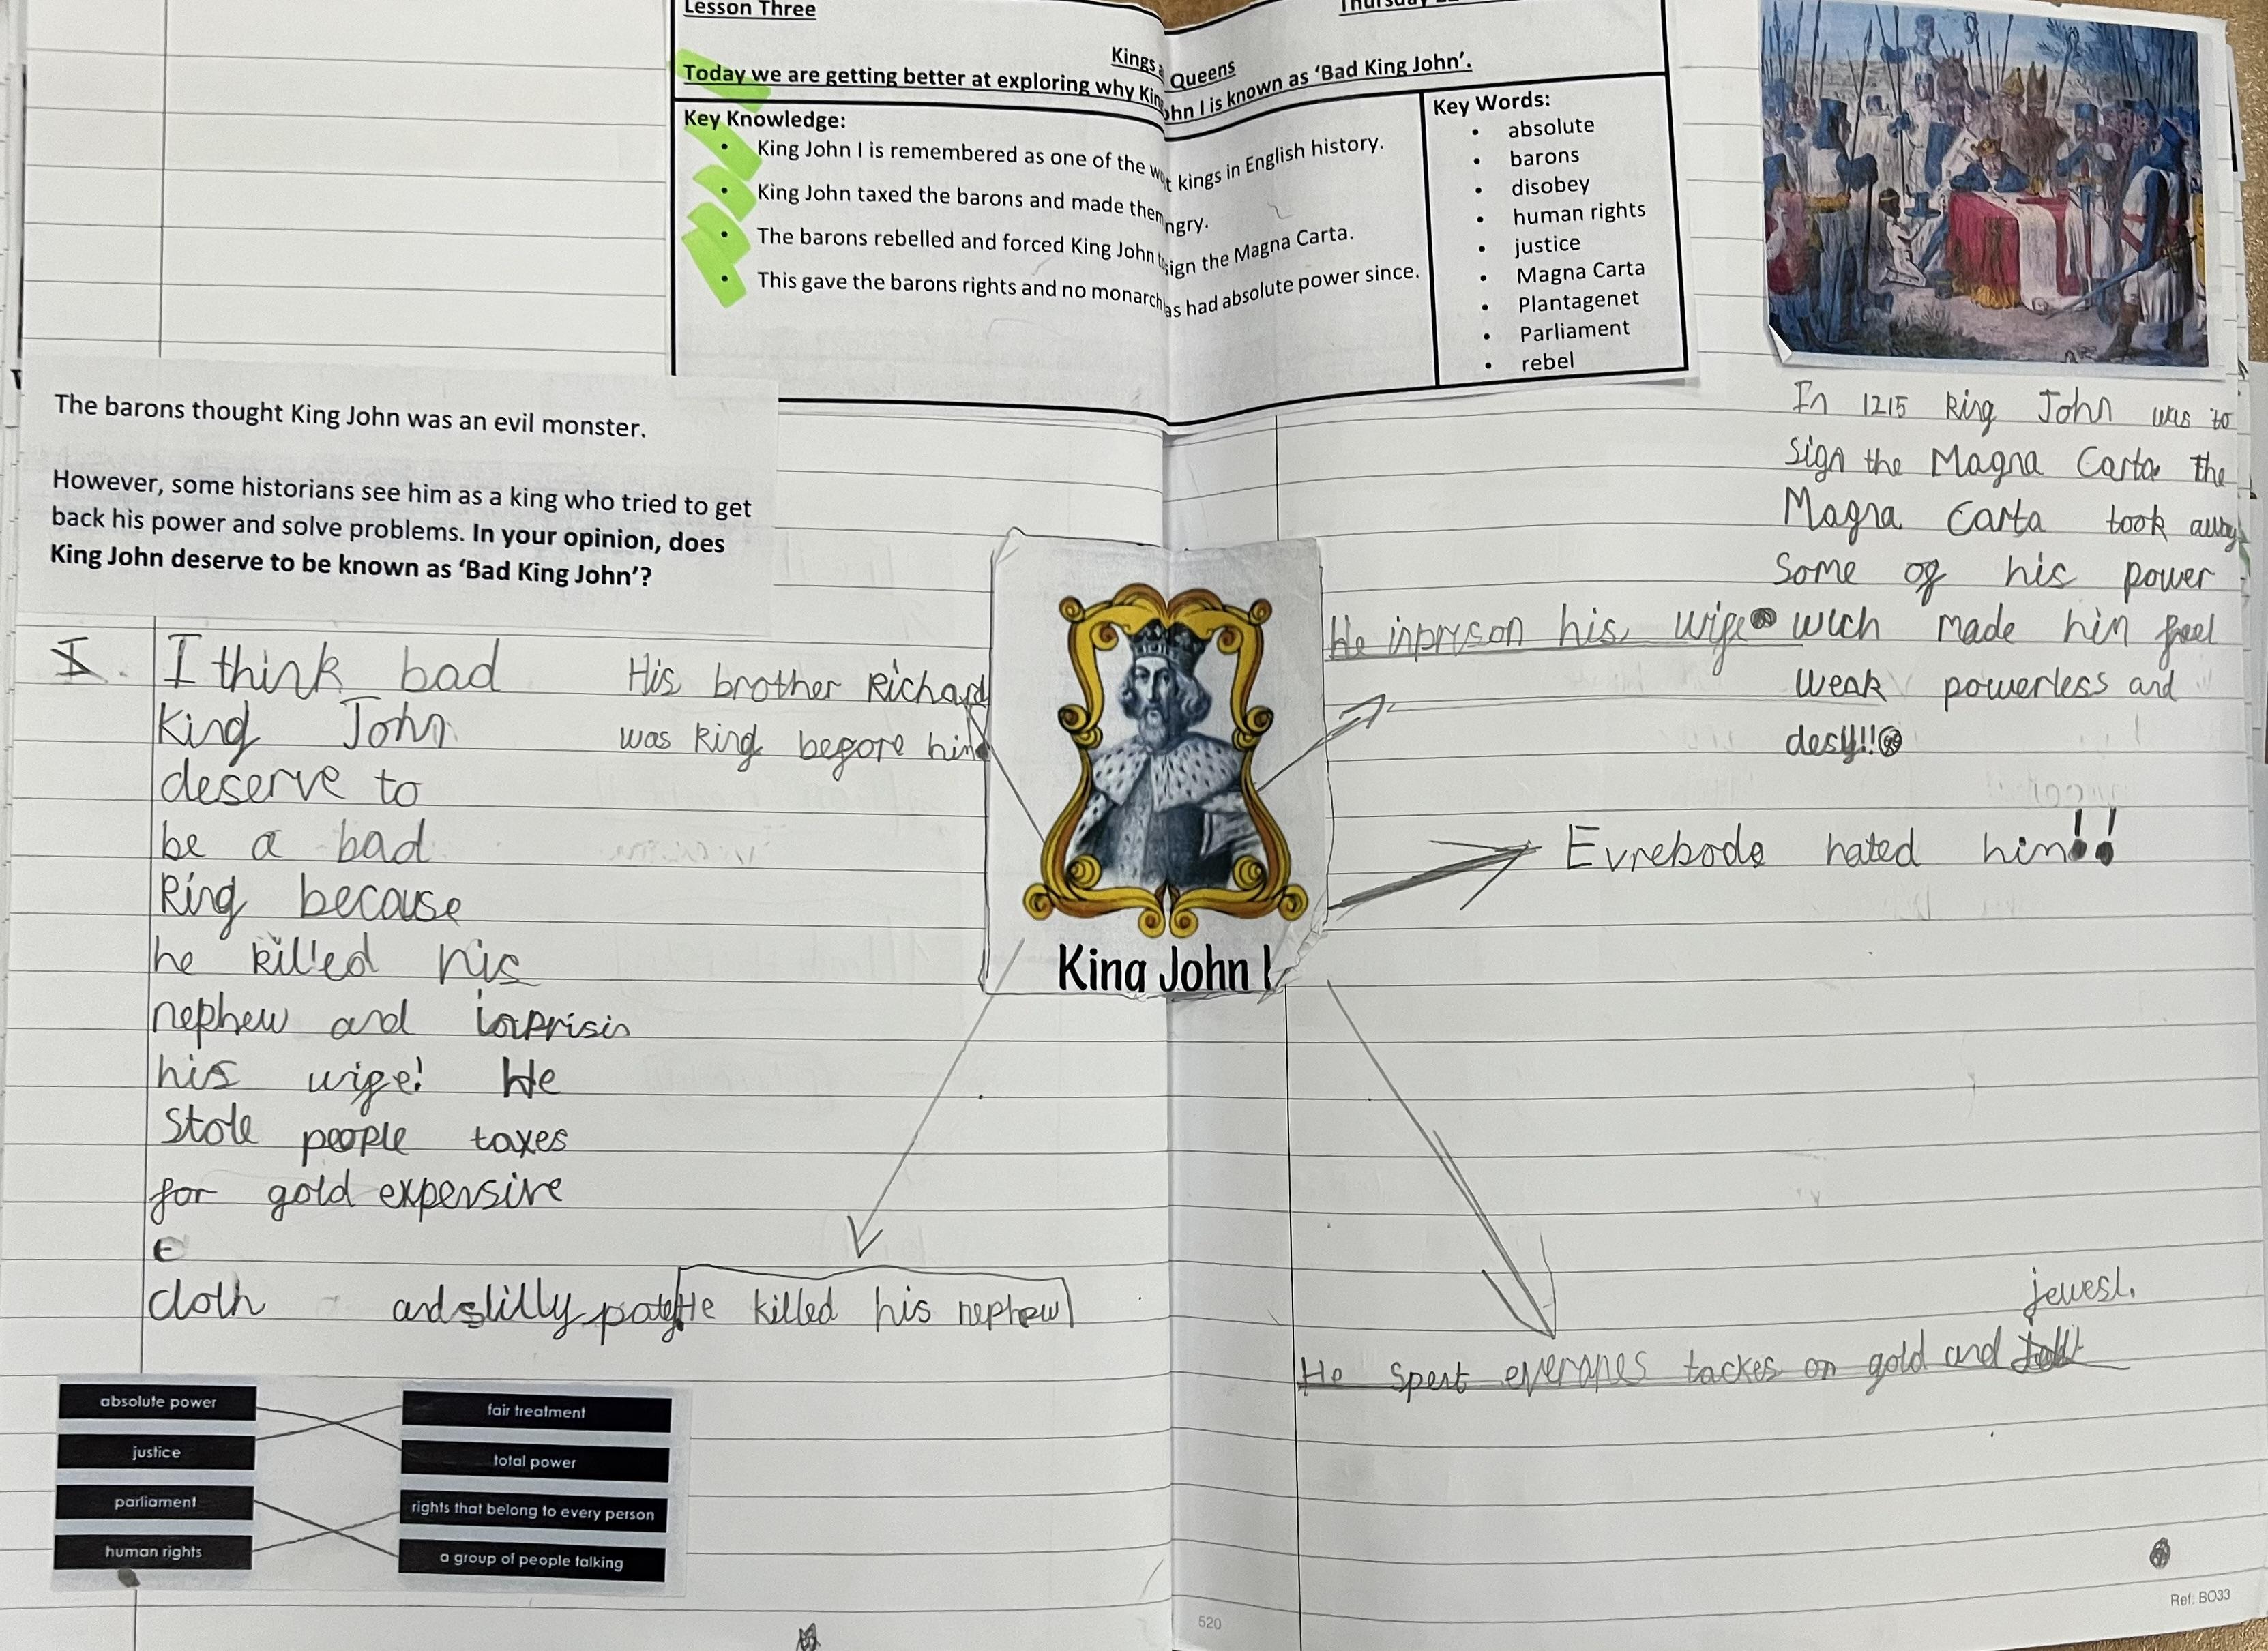 Lesson Three
Thursday
Kings Queens
Today we are getting better at exploring why Kin ohn I is known as ‘Bad King John’.
Key Knowledge:
• King John I is remembered as one of the wo t kings in English history.
• King John taxed the barons and made them ngry.
• The barons rebelled and forced King John sign the Magna Carta.
• This gave the barons rights and no monarch as had absolute power since.
Key Words:
• absolute
• barons
• disobey
• human rights
• justice
• Magna Carta
• Plantagenet
• Parliament
• rebel
The barons thought King John was an evil monster.
However, some historians see him as a king who tried to get
back his power and solve problems. In your opinion, does
King John deserve to be known as ‘Bad King John’?
I think bad
King John
deserve to
be a bad
King because
he killed his
nephew and inprisin
his wife! He
stole people taxes
for gold expensive
cloth and slilly
His brother Richard
was king before him
He killed his nephew
King John I
In 1215 King John was to
sign the Magna Carta the
Magna Carta took away
some of his power
wich made him feel
weak powerless and
He inprison his wife
Evrebode hated him!!
He spent everones tackes on gold and
jewesl.
absolute power
justice
parliament
human rights
fair treatment
total power
rights that belong to every person
a group of people talking
520
Ref: BO33